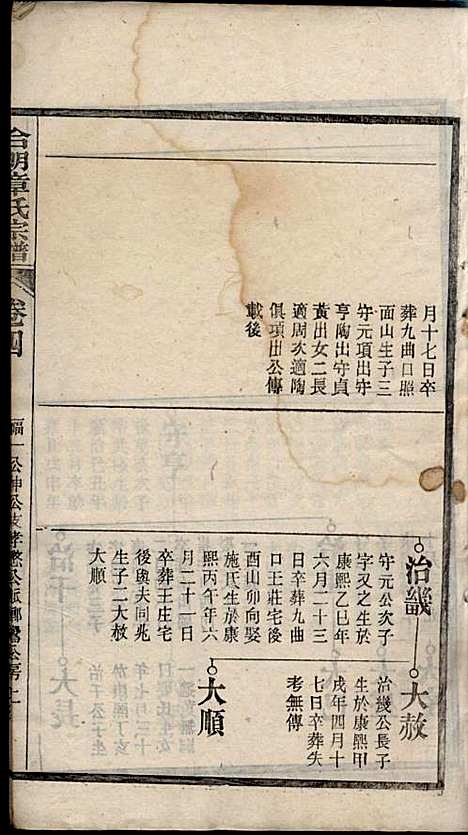 月十七日卒
葬九曲口照
面山生子三
守元項出守
亨陶出守貞
黃出女二長
適周次適陶
俱項出公傳
載後
治畿
守元公次子
字又之生於
康熙乙巳年
六月二十三
日卒葬九曲
口王莊宅後
酉山卯向娶
施氏生於康
熙丙午年六
月二十一日
卒葬王庄宅
後與夫同兆
生子二大赦
大順
大赦
治幾公長子
生於康熙甲
戌年四月十
七日卒葬失
考無傳
大順
會朝章氏宗譜
卷四